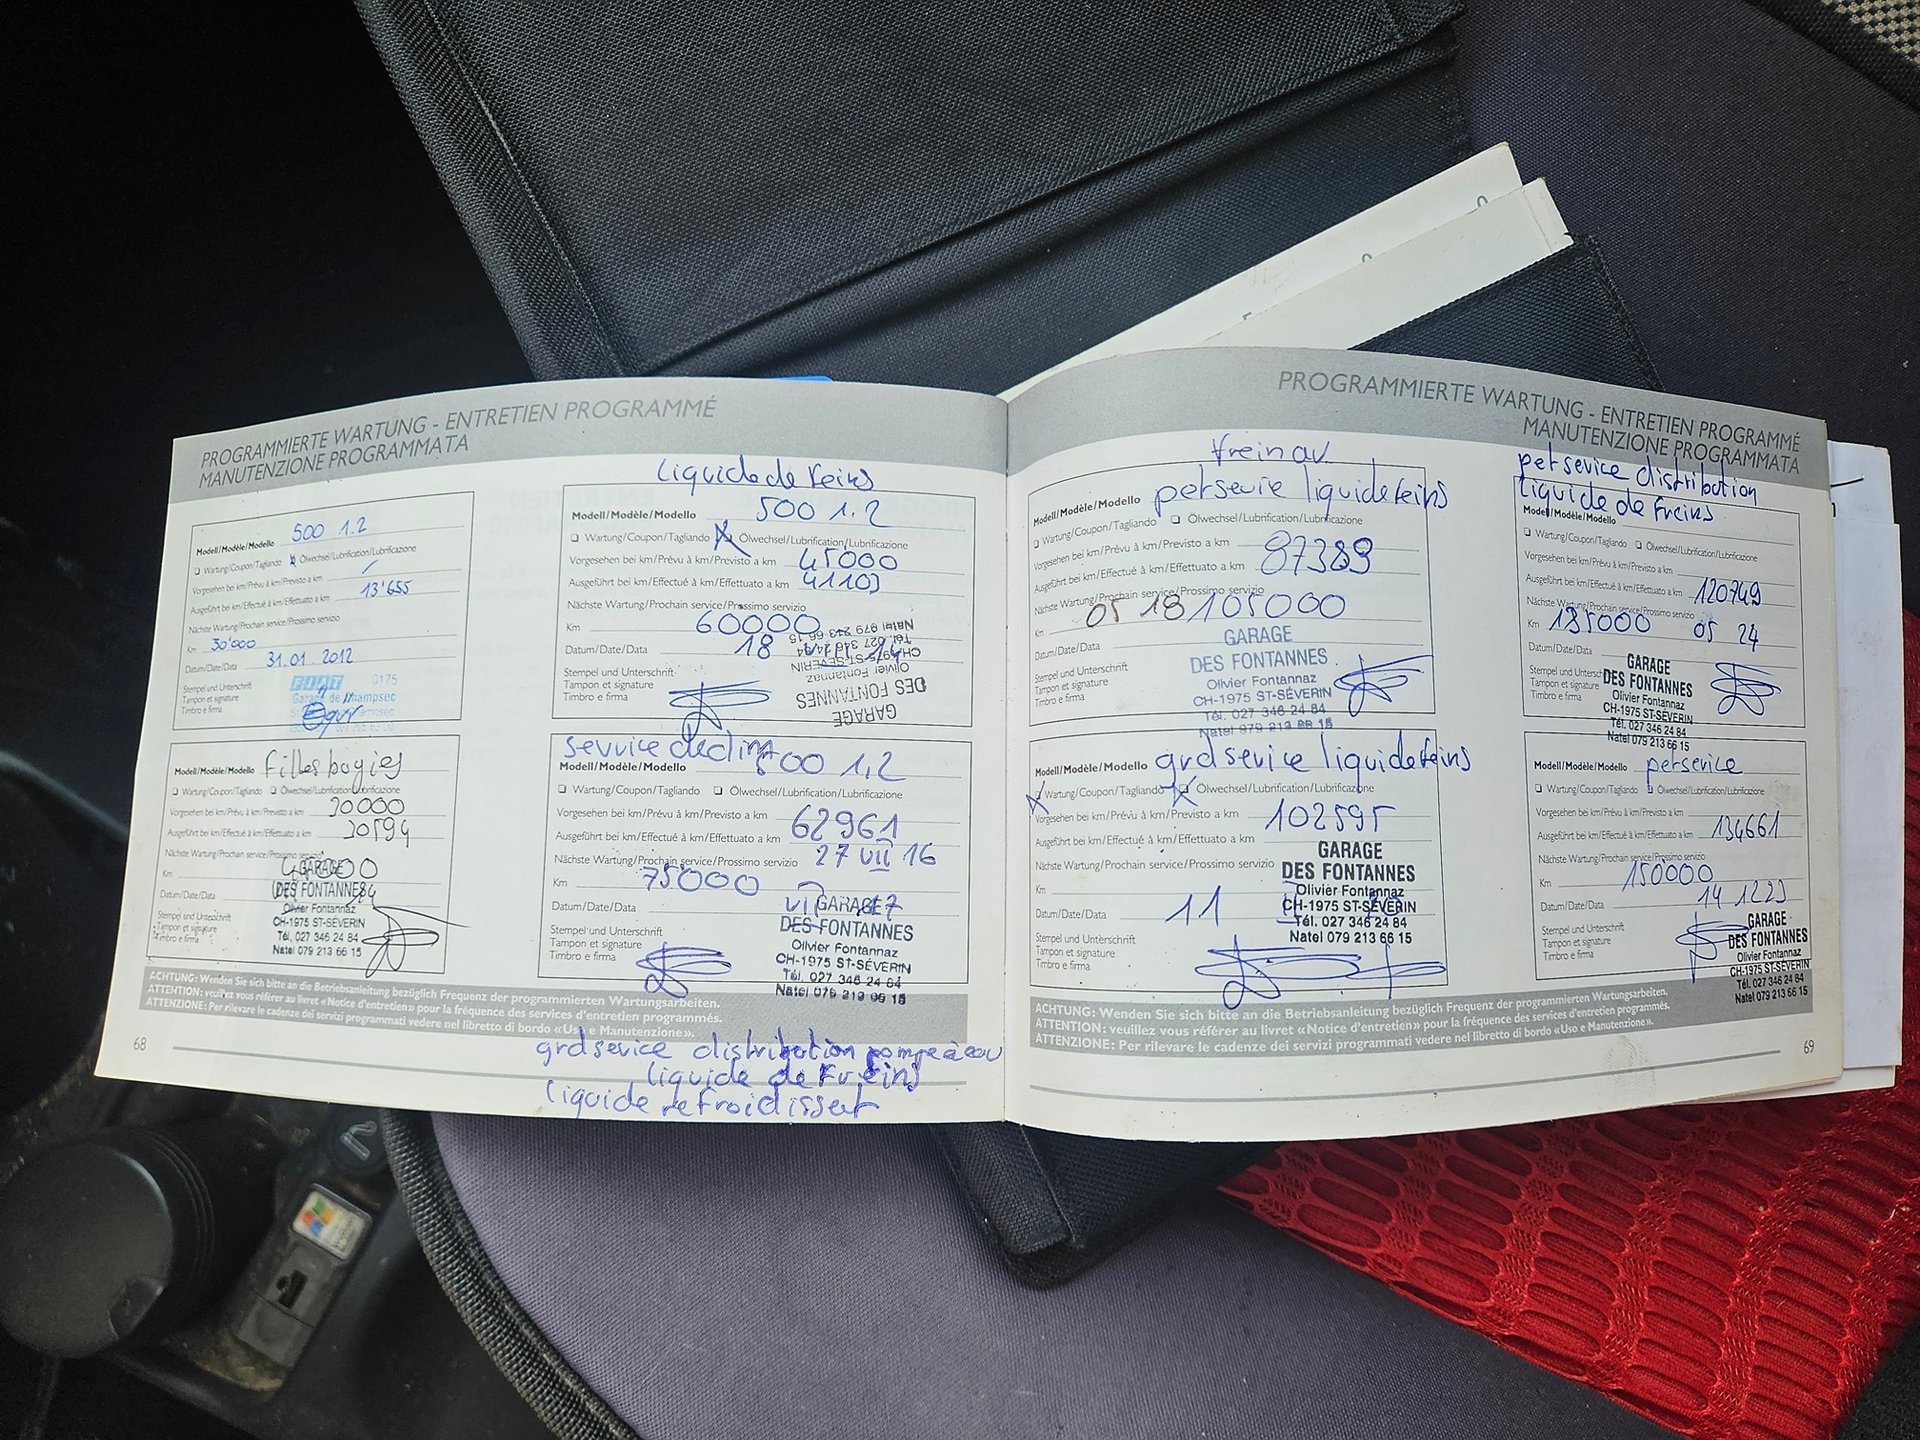 PROGRAMMIERTE WARTUNG - ENTRETIEN PROGRAMMÉ
MANUTENZIONE PROGRAMMATA
500 1.2
Modell/Modèle/Modello
❑ Wartung/Coupon/Tagliando ❑ Ölwechsel/Lubrification/Lubrificazione
Vorgesehen bei km/Prévu à km/Previsto a km /
Ausgeführt bei km/Effectué à km/Effettuato a km 13'655
Nächste Wartung/Prochain service/Prossimo servizio
Km 30'000
Datum/Date/Data 31.01.2012
Stempel und Unterschrift
Tampon et signature
Timbro e firma
FIAT
Garage de Champsec
Modell/Modèle/Modello
❑ Wartung/Coupon/Tagliando ❑ Ölwechsel/Lubrification/Lubrificazione
Vorgesehen bei km/Prévu à km/Previsto a km 30000
Ausgeführt bei km/Effectué à km/Effettuato a km 30594
Nächste Wartung/Prochain service/Prossimo servizio
Km
Datum/Date/Data
Stempel und Unterschrift
Tampon et signature
Timbro e firma
GARAGE
DES FONTANNES
Olivier Fontannaz
CH-1975 ST-SÉVERIN
Tél. 027 346 24 84
Natel 079 213 66 15
liquide de freins
Modell/Modèle/Modello 500 1.2
❑ Wartung/Coupon/Tagliando ❑ Ölwechsel/Lubrification/Lubrificazione
Vorgesehen bei km/Prévu à km/Previsto a km 45000
Ausgeführt bei km/Effectué à km/Effettuato a km 41103
Nächste Wartung/Prochain service/Prossimo servizio
Km 60000
Datum/Date/Data 18
Stempel und Unterschrift
Tampon et signature
Timbro e firma
GARAGE
DES FONTANNES
Olivier Fontannaz
CH-1975 ST-SÉVERIN
Tél. 027 346 24 84
Natel 079 213 66 15
service
Modell/Modèle/Modello 500 1,2
❑ Wartung/Coupon/Tagliando ❑ Ölwechsel/Lubrification/Lubrificazione
Vorgesehen bei km/Prévu à km/Previsto a km
Ausgeführt bei km/Effectué à km/Effettuato a km 62961
Nächste Wartung/Prochain service/Prossimo servizio 27 VII 16
Km 75000
Datum/Date/Data
Stempel und Unterschrift
Tampon et signature
Timbro e firma
GARAGE
DES FONTANNES
Olivier Fontannaz
CH-1975 ST-SÉVERIN
Tél. 027 346 24 84
Natel 079 213 66 15
ACHTUNG: Wenden Sie sich bitte an die Betriebsanleitung bezüglich Frequenz der programmierten Wartungsarbeiten.
ATTENTION: veuillez vous référer au livret «Notice d'entretien» pour la fréquence des services d'entretien programmés.
ATTENZIONE: Per rilevare le cadenze dei servizi programmati vedere nel libretto di bordo «Uso e Manutenzione».
68
grd service distribution pompe à eau
liquide de freins
liquide refroidissent
PROGRAMMIERTE WARTUNG - ENTRETIEN PROGRAMMÉ
MANUTENZIONE PROGRAMMATA
frein av
Modell/Modèle/Modello petservie liquide feins
❑ Wartung/Coupon/Tagliando ❑ Ölwechsel/Lubrification/Lubrificazione
Vorgesehen bei km/Prévu à km/Previsto a km
Ausgeführt bei km/Effectué à km/Effettuato a km 87389
Nächste Wartung/Prochain service/Prossimo servizio
Km 05 18 105000
Datum/Date/Data
Stempel und Unterschrift
Tampon et signature
Timbro e firma
GARAGE
DES FONTANNES
Olivier Fontannaz
CH-1975 ST-SÉVERIN
Tél. 027 346 24 84
Natel 079 213 66 15
Modell/Modèle/Modello grd sevice liquide feins
❑ Wartung/Coupon/Tagliando ❑ Ölwechsel/Lubrification/Lubrificazione
Vorgesehen bei km/Prévu à km/Previsto a km
Ausgeführt bei km/Effectué à km/Effettuato a km 102595
Nächste Wartung/Prochain service/Prossimo servizio
Km
Datum/Date/Data 11
Stempel und Unterschrift
Tampon et signature
Timbro e firma
GARAGE
DES FONTANNES
Olivier Fontannaz
CH-1975 ST-SÉVERIN
Tél. 027 346 24 84
Natel 079 213 66 15
pet sevice distribution
liquide de freins
Modell/Modèle/Modello
❑ Wartung/Coupon/Tagliando ❑ Ölwechsel/Lubrification/Lubrificazione
Vorgesehen bei km/Prévu à km/Previsto a km
Ausgeführt bei km/Effectué à km/Effettuato a km 120749
Nächste Wartung/Prochain service/Prossimo servizio
Km 135000 05 24
Datum/Date/Data
Stempel und Unterschrift
Tampon et signature
Timbro e firma
GARAGE
DES FONTANNES
Olivier Fontannaz
CH-1975 ST-SÉVERIN
Tél. 027 346 24 84
Natel 079 213 66 15
Modell/Modèle/Modello petsevice
❑ Wartung/Coupon/Tagliando ❑ Ölwechsel/Lubrification/Lubrificazione
Vorgesehen bei km/Prévu à km/Previsto a km
Ausgeführt bei km/Effectué à km/Effettuato a km 134661
Nächste Wartung/Prochain service/Prossimo servizio
Km 150000
Datum/Date/Data 14 12 23
Stempel und Unterschrift
Tampon et signature
Timbro e firma
GARAGE
DES FONTANNES
Olivier Fontannaz
CH-1975 ST-SÉVERIN
Tél. 027 346 24 84
Natel 079 213 66 15
ACHTUNG: Wenden Sie sich bitte an die Betriebsanleitung bezüglich Frequenz der programmierten Wartungsarbeiten.
ATTENTION: veuillez vous référer au livret «Notice d'entretien» pour la fréquence des services d'entretien programmés.
ATTENZIONE: Per rilevare le cadenze dei servizi programmati vedere nel libretto di bordo «Uso e Manutenzione».
69